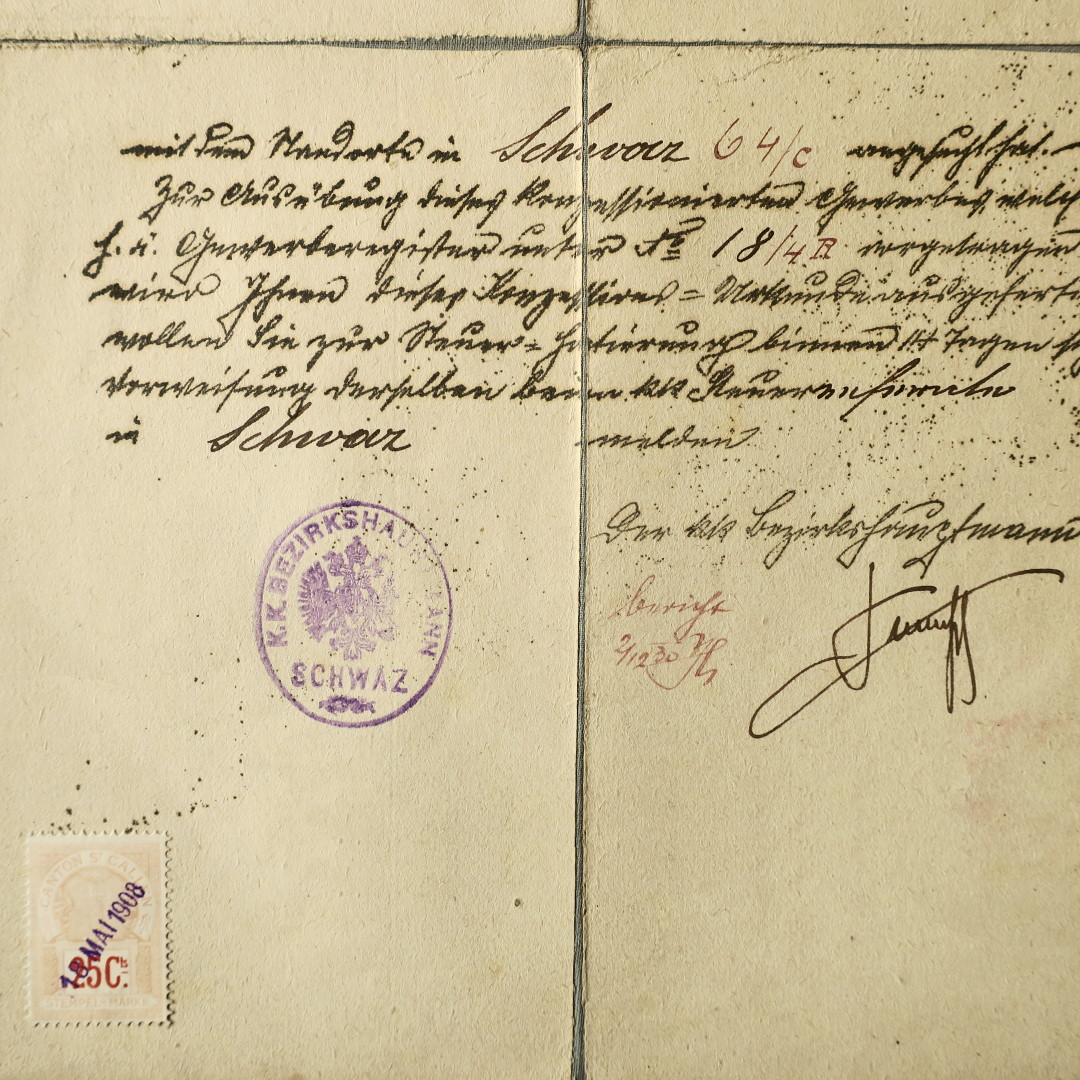 mit dem Standorte in Schwaz 64/c angesucht hat.
Zur Ausübung dieses konzessionierten Gewerbes, welch
h. ä. Gewerberegister unter No 18/4 R vorgetragen
wird Ihnen dieses Konzessions = Urkunde ausgeferti
wollen Sie zur Steuer = Fatierung binnen 14 Tagen
Vorweisung derselben beim kk Steuerreferate
in Schwaz melden
Der kk Bezirkshauptmann
Bericht
K.K. BEZIRKSHAUPTMANN
SCHWAZ
CANTON ST GALLEN
18 MAI 1908
25 Cts
STEMPELMARKE